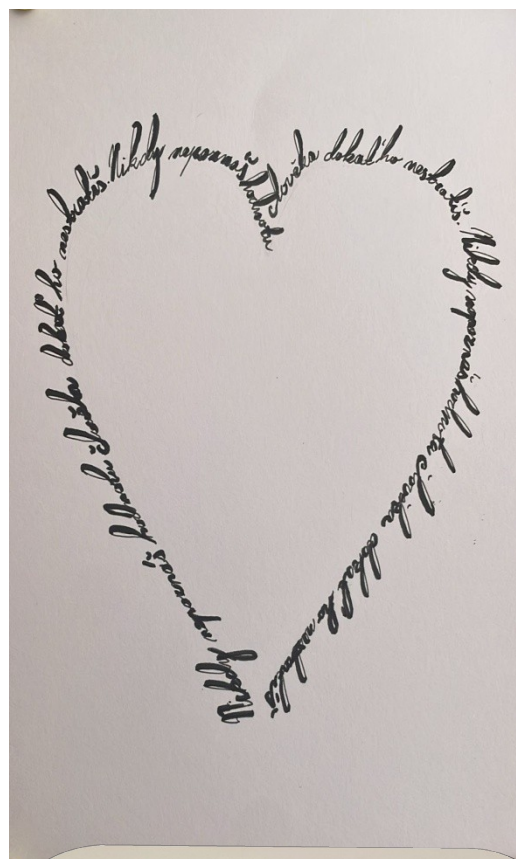 Nikdy nepoznáš hodnotu človeka dokaľ ho nestratíš. Nikdy nepoznáš hodnotu človeka dokaľ ho nestratíš. Nikdy nepoznáš hodnotu človeka dokaľ ho nestratíš